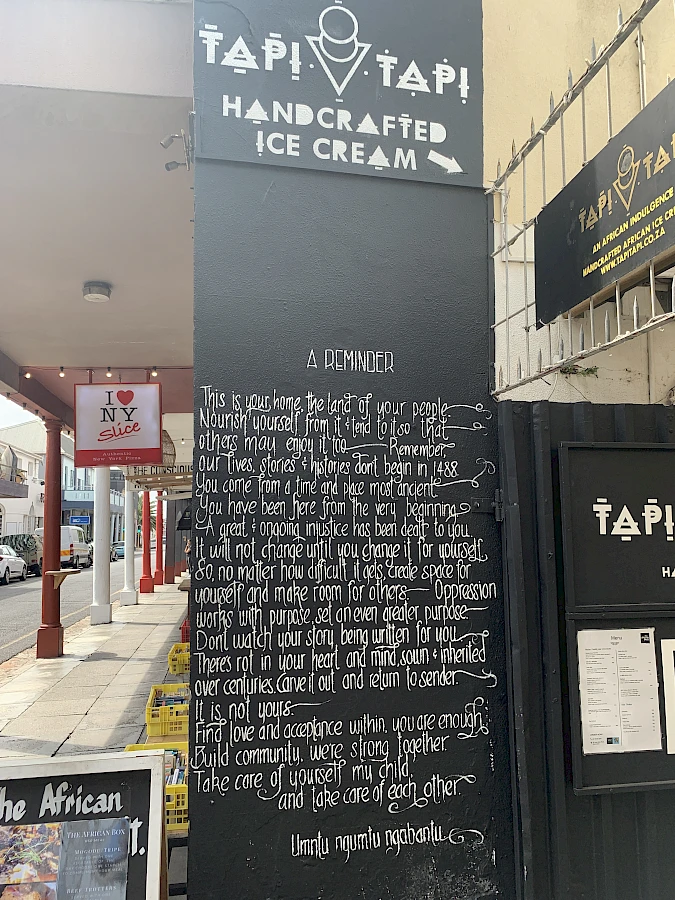 TAPI TAPI
HANDCRAFTED
ICE CREAM
A REMINDER
This is your home, the land of your people
Nourish yourself from it & tend to it so that
others may enjoy it too Remember,
our lives, stories & histories don't begin in 1488
You come from a time and place most ancient
You have been here from the very beginning
A great & ongoing injustice has been dealt to you
It will not change until you change it for yourself
So, no matter how difficult it gets, create space for
yourself and make room for others Oppression
works with purpose, set an even greater purpose
Don't watch your story being written for you
There's rot in your heart and mind, sown & inherited
over centuries, carve it out and return to sender
It is not yours
Find love and acceptance within, you are enough
Build community, we're strong together.
Take care of yourself my child,
and take care of each other.
Umntu ngumtu ngabantu
TAPI TAP
AN AFRICAN INDULGENCE
HANDCRAFTED AFRICAN ICE CR
WWW.TAPITAPI.CO.ZA
I ♥
NY
Slice
Authentic
New York Pizza
THE CONSCIOUS
TAPI
HA
Menu
he African
t.
THE AFRICAN BOX
MOGODU TRIPE
BEEF TROTTERS